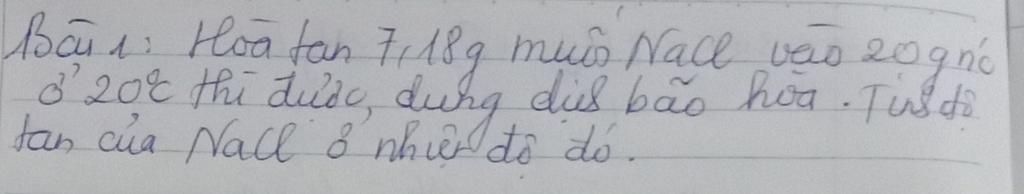 Bài 1: Hoà tan 7,18g muối NaCl vào 20g nc
ở 20°C thì được, dung dịch bão hòa. Tính độ
tan của NaCl ở nhiệt độ đó.